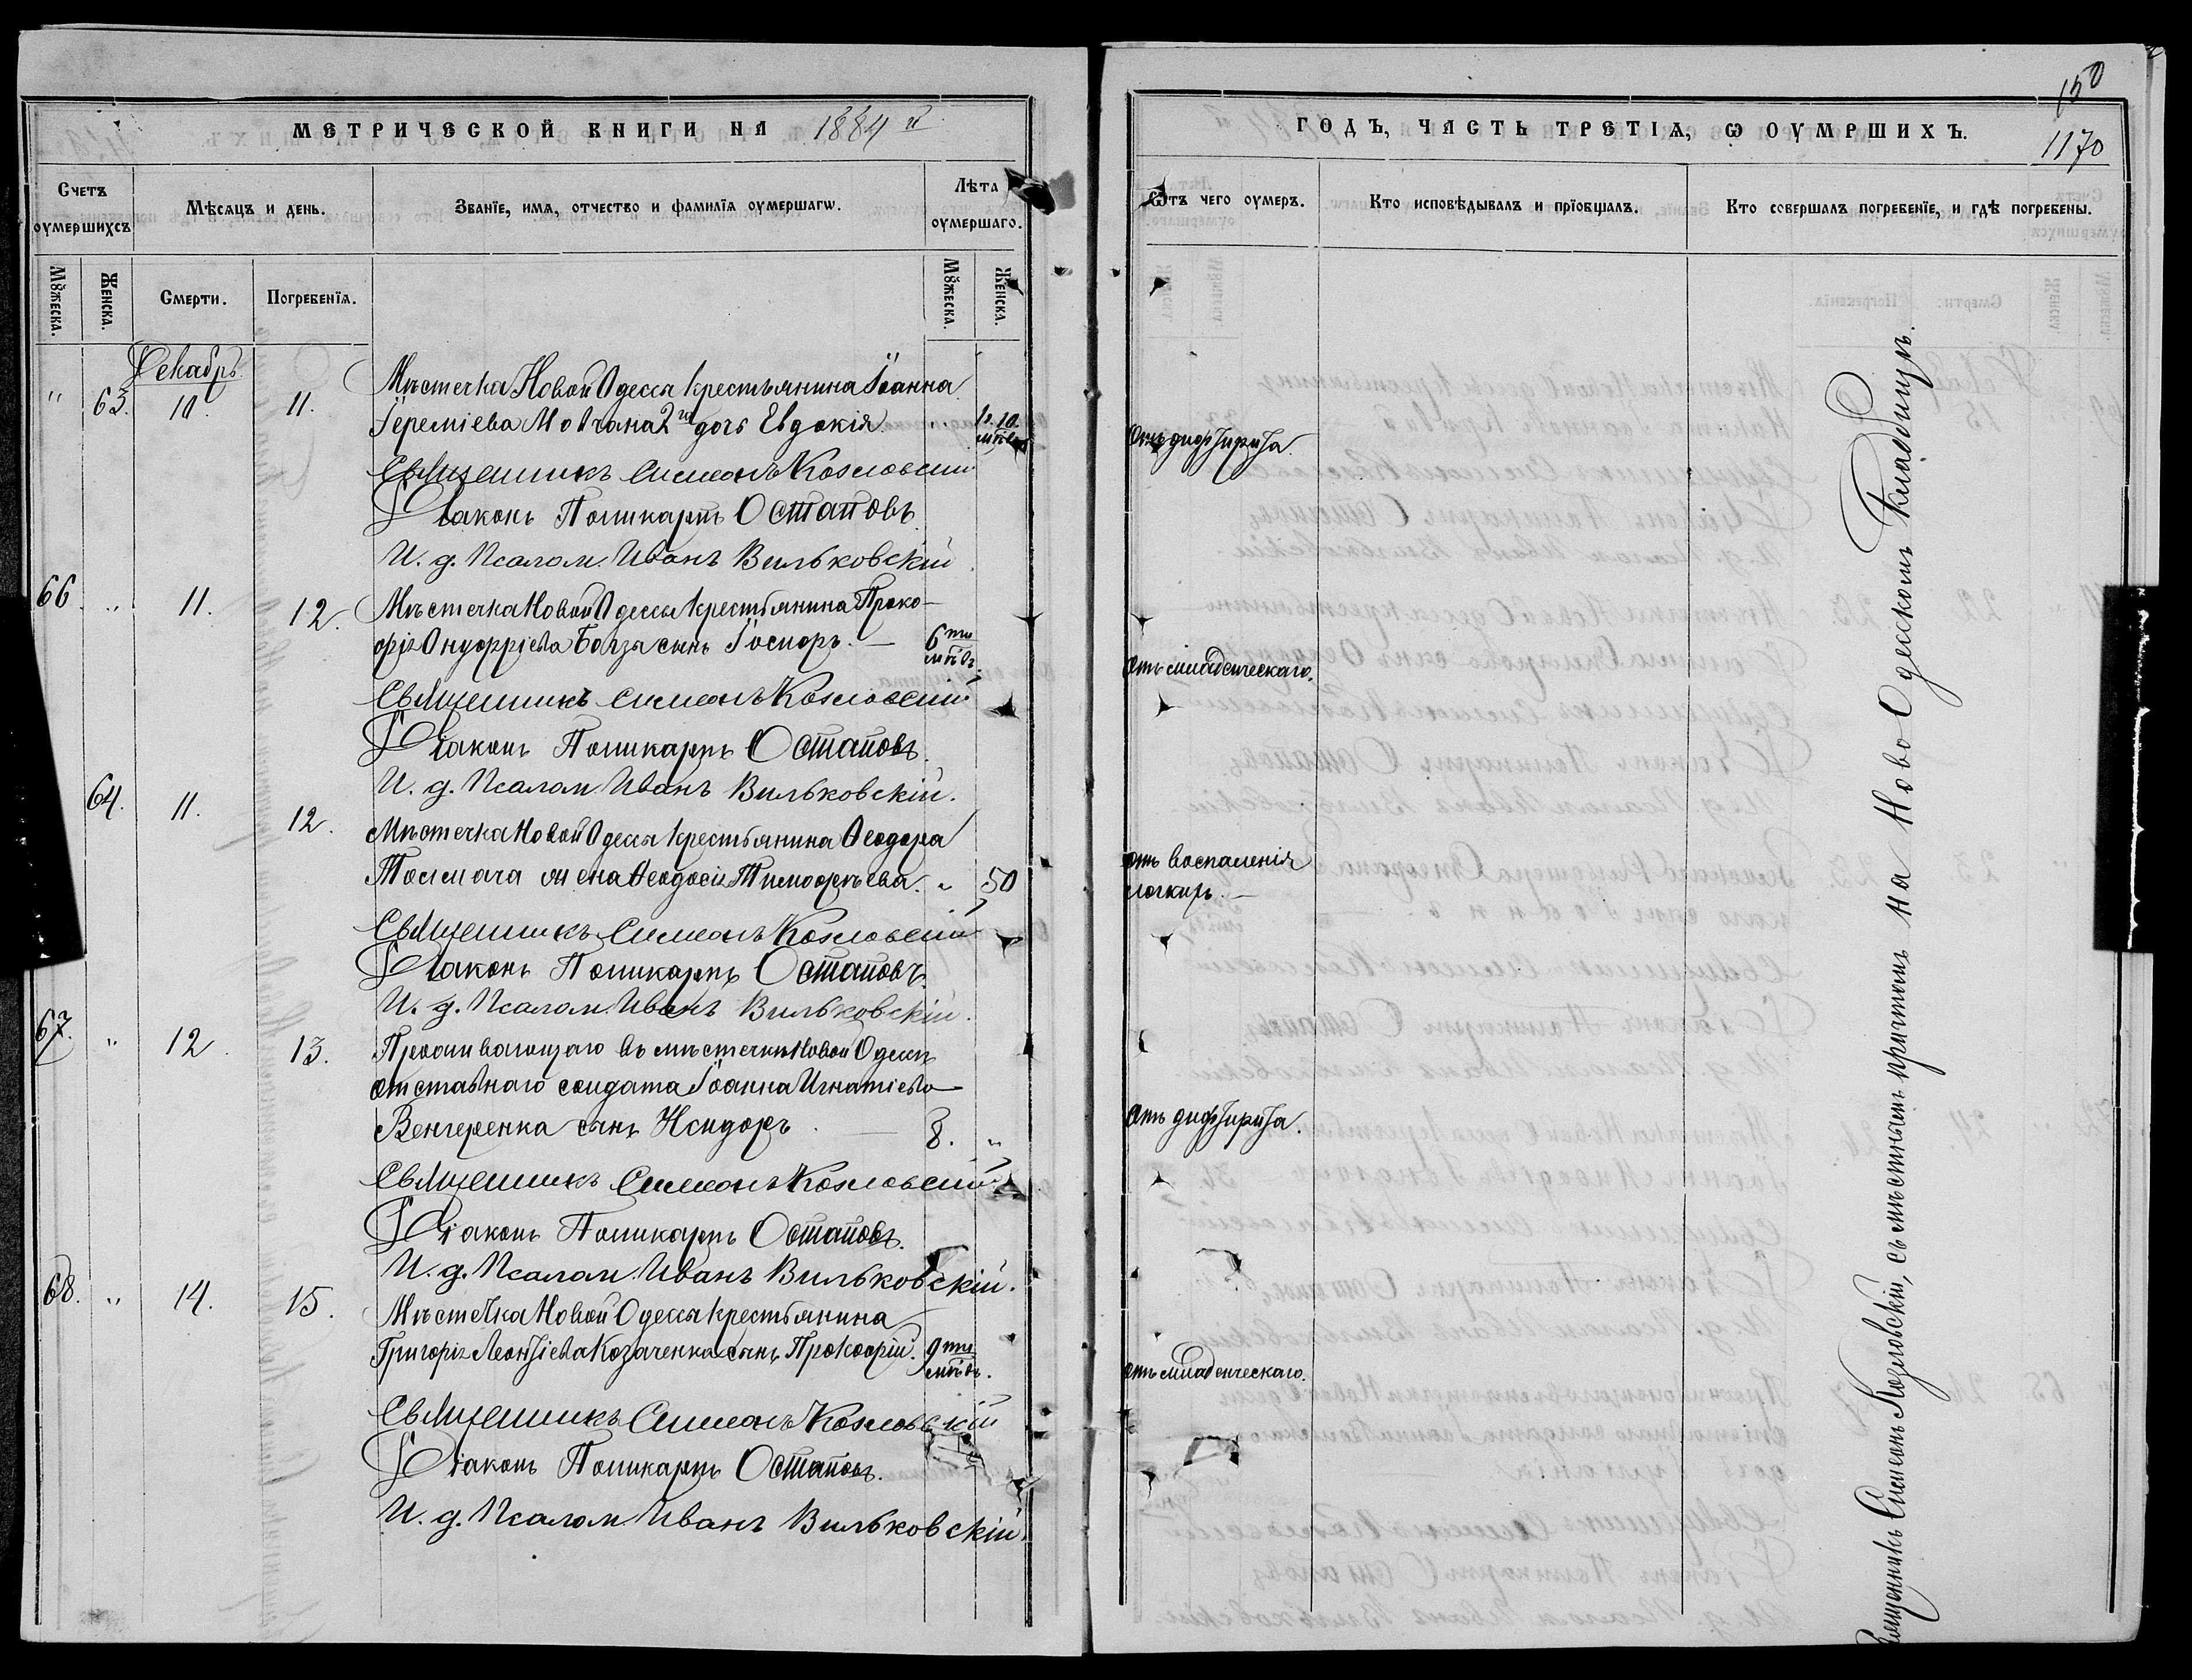 МЕТРИЧЕСКОЙ КНИГИ НА 1884 й
Счетъ оумершихсъ
Мѣсяцъ и день.
Званїе, имя, отчество и фамилїя оумершагѡ.
Лѣта оумершаго.
Мꙋжеска.
Женска.
Смерти.
Погребенїя.
Мꙋжеска.
Женска.
Декабрь
" 63. 10. 11. Мѣстечка Новой Одесса крестьянина Іоанна
Іереміева Мовчана 2 дочь Евдокія.
Священникъ Симеонъ Козловскій
Діаконъ Поликарпъ Остаповъ
И. д. Псалом. Иванъ Вильковскій
66. " 11. 12. Мѣстечка Новой Одессы крестьянина Проко-
фія Онуфріева сынъ Іосифъ. — 6 ти
мѣс.
Священникъ Симеонъ Козловскій
Діаконъ Поликарпъ Остаповъ.
И. д. Псалом. Иванъ Вильковскій.
64. 11. 12. Мѣстечка Новой Одессы крестьянина Ѳеодора
Толмача жена Ѳеодосія Тимофѣева. " 50
Священникъ Симеонъ Козловскій
Діаконъ Поликарпъ Остаповъ.
И. д. Псалом. Иванъ Вильковскій.
67. " 12. 13. Проживающаго въ мѣстечкѣ Новой Одессѣ
отставнаго солдата Іоанна Игнатіева
Венгеренка сынъ Исидоръ. — 8. "
Священникъ Симеонъ Козловскій
Діаконъ Поликарпъ Остаповъ.
И. д. Псалом. Иванъ Вильковскій.
68. " 14. 15. Мѣстечка Новой Одессы крестьянина
Григорія Леонтіева Козаченка сынъ Прокофій. 9 ти
мѣс.
Священникъ Симеонъ Козловскій
Діаконъ Поликарпъ Остаповъ.
И. д. Псалом. Иванъ Вильковскій.
150
ГОДЪ, ЧАСТЬ ТРЕТІЯ, Ѡ ОУМРШИХЪ.
1170
Ѿтъ чего оумеръ.
Кто исповѣдывалъ и прїобщалъ.
Кто совершалъ погребенїе, и гдѣ погребены.
Отъ дифтирита.
отъ младенческаго.
отъ воспаленія
легкихъ. —
отъ дифтирита.
отъ младенческаго.
Священникъ Симеонъ Козловскій, съ мѣстнымъ причтомъ на Ново Одесскомъ кладбищѣ.